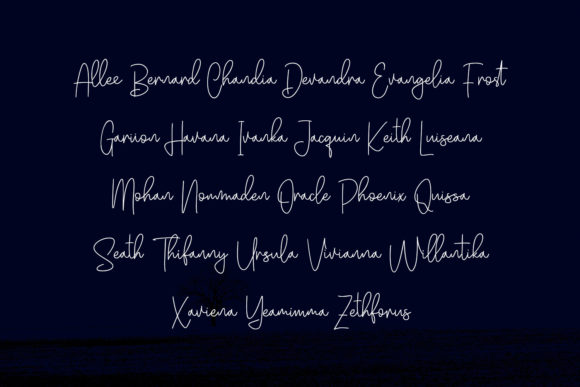 Allee Bernard Chandia Devandra Evangelia Frost
Gariion Havana Ivanka Jacquin Keith Luiseana
Mohan Nommaden Oracle Phoenix Quissa
Seath Thifanny Ursula Vivianna Willantika
Xaviena Yeamimma Zethforus